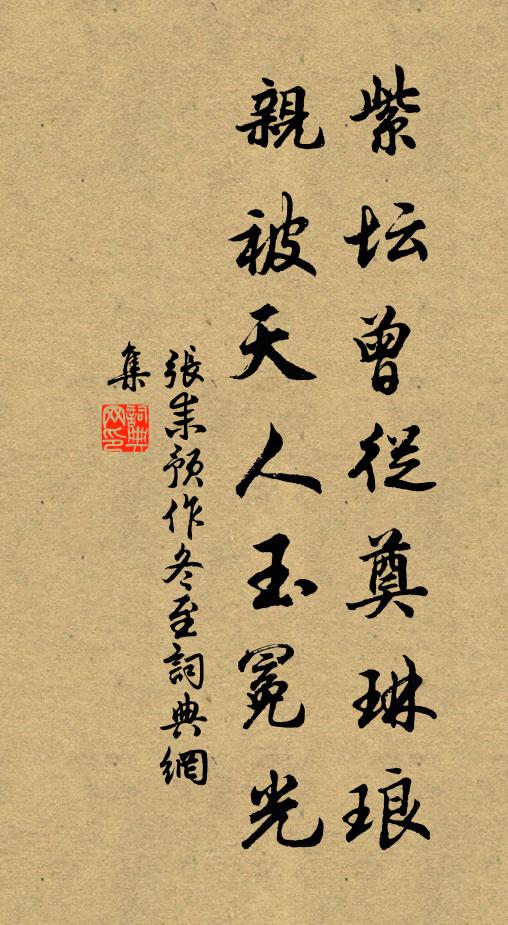 紫坛曾從奠琳琅
親被天人玉冕光
張耒預作冬至詞典網
集
詞典网印